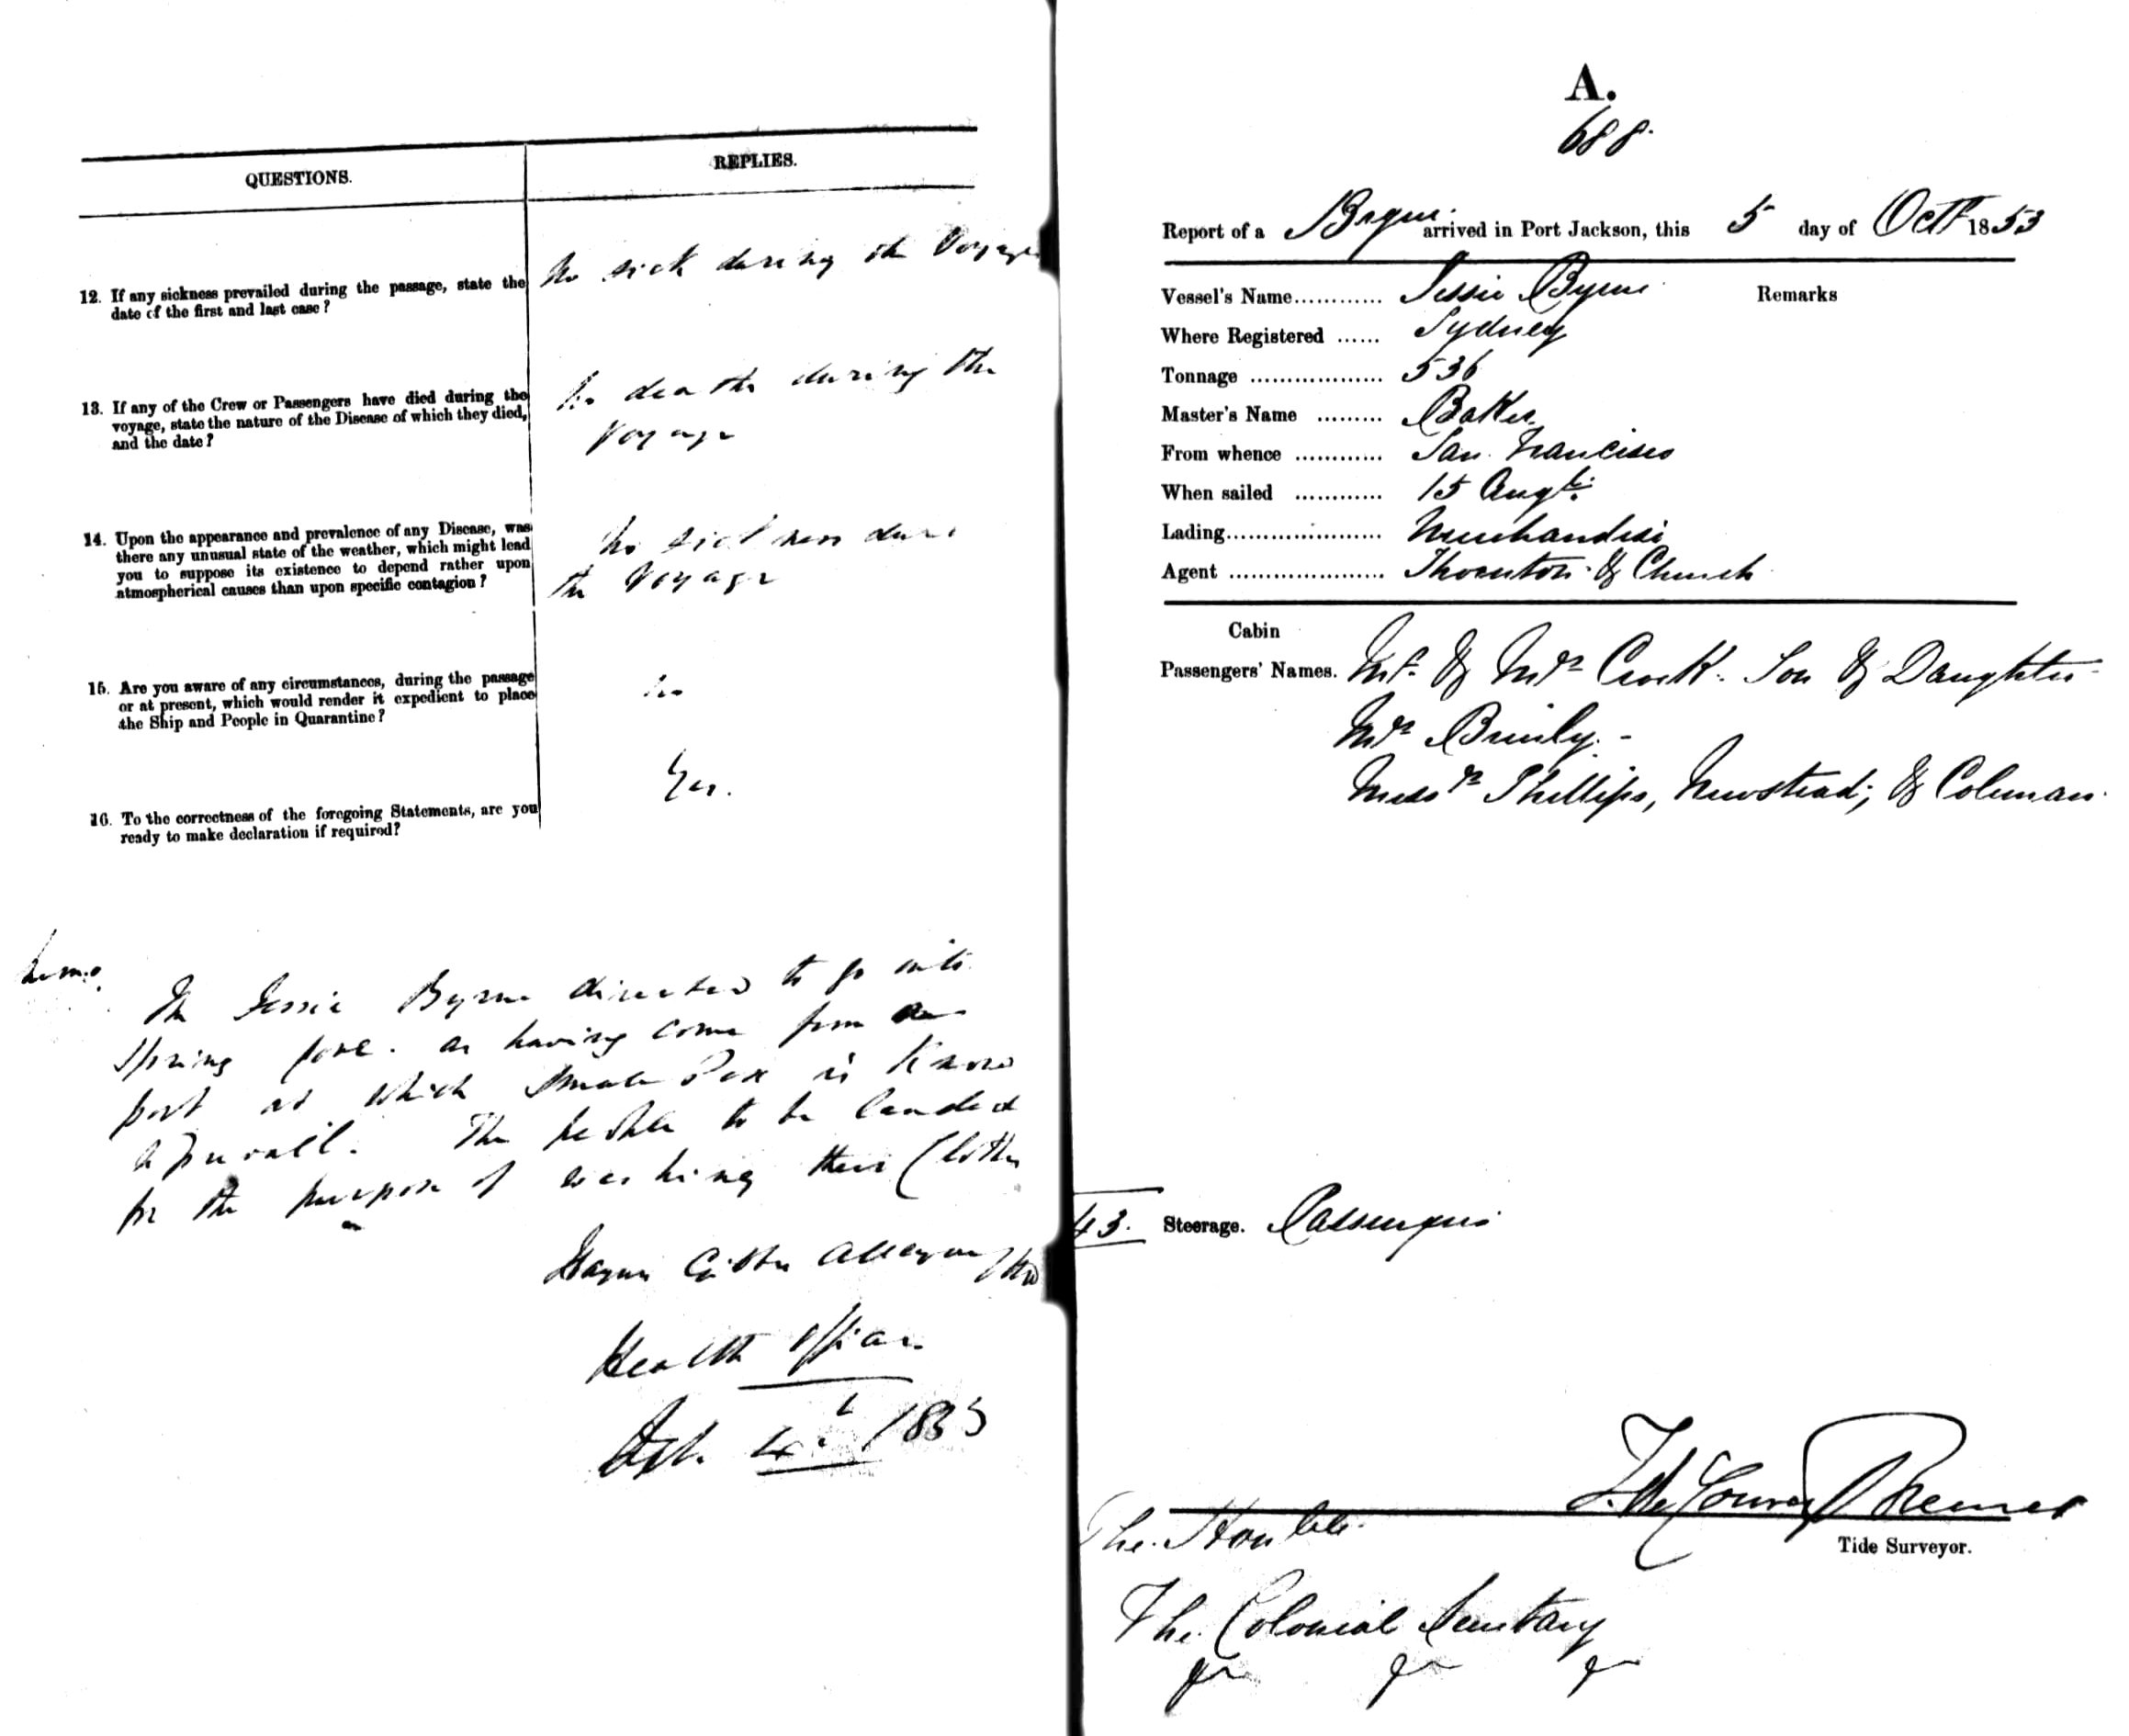 QUESTIONS.
REPLIES.
12. If any sickness prevailed during the passage, state the
date of the first and last case?
No sick during the Voyage
13. If any of the Crew or Passengers have died during the
voyage, state the nature of the Disease of which they died,
and the date?
No deaths during the
Voyage
14. Upon the appearance and prevalence of any Disease, was
there any unusual state of the weather, which might lead
you to suppose its existence to depend rather upon
atmospherical causes than upon specific contagion?
No sickness
the Voyage
15. Are you aware of any circumstances, during the passage
or at present, which would render it expedient to place
the Ship and People in Quarantine?
No
16. To the correctness of the foregoing Statements, are you
ready to make declaration if required?
Yes.
The Jessie Byrne directed to go into
Spring Cove. as having come from a
port at which Small Pox is known
to prevail. The people to be landed
for the purpose of washing their Clothes
Haynes Gibbes Alleyne MD
Health Officer
4th 1853
A.
688.
Report of a Barque arrived in Port Jackson, this 5 day of Octr 1853
Vessel's Name............ Jessie Byrne Remarks
Where Registered ...... Sydney
Tonnage .................. 536
Master's Name ......... Baker
From whence ............ San Francisco
When sailed ............ 15 Augt.
Lading...................... Merchandise
Agent ...................... Thornton & Church
Cabin
Passengers' Names. Mr. & Mrs Crook. Son & Daughter
Mrs
Messrs Phillips, Newstead, & Coleman.
43. Steerage. Passengers
Tide Surveyor.
The Honble.
The Colonial Secretary